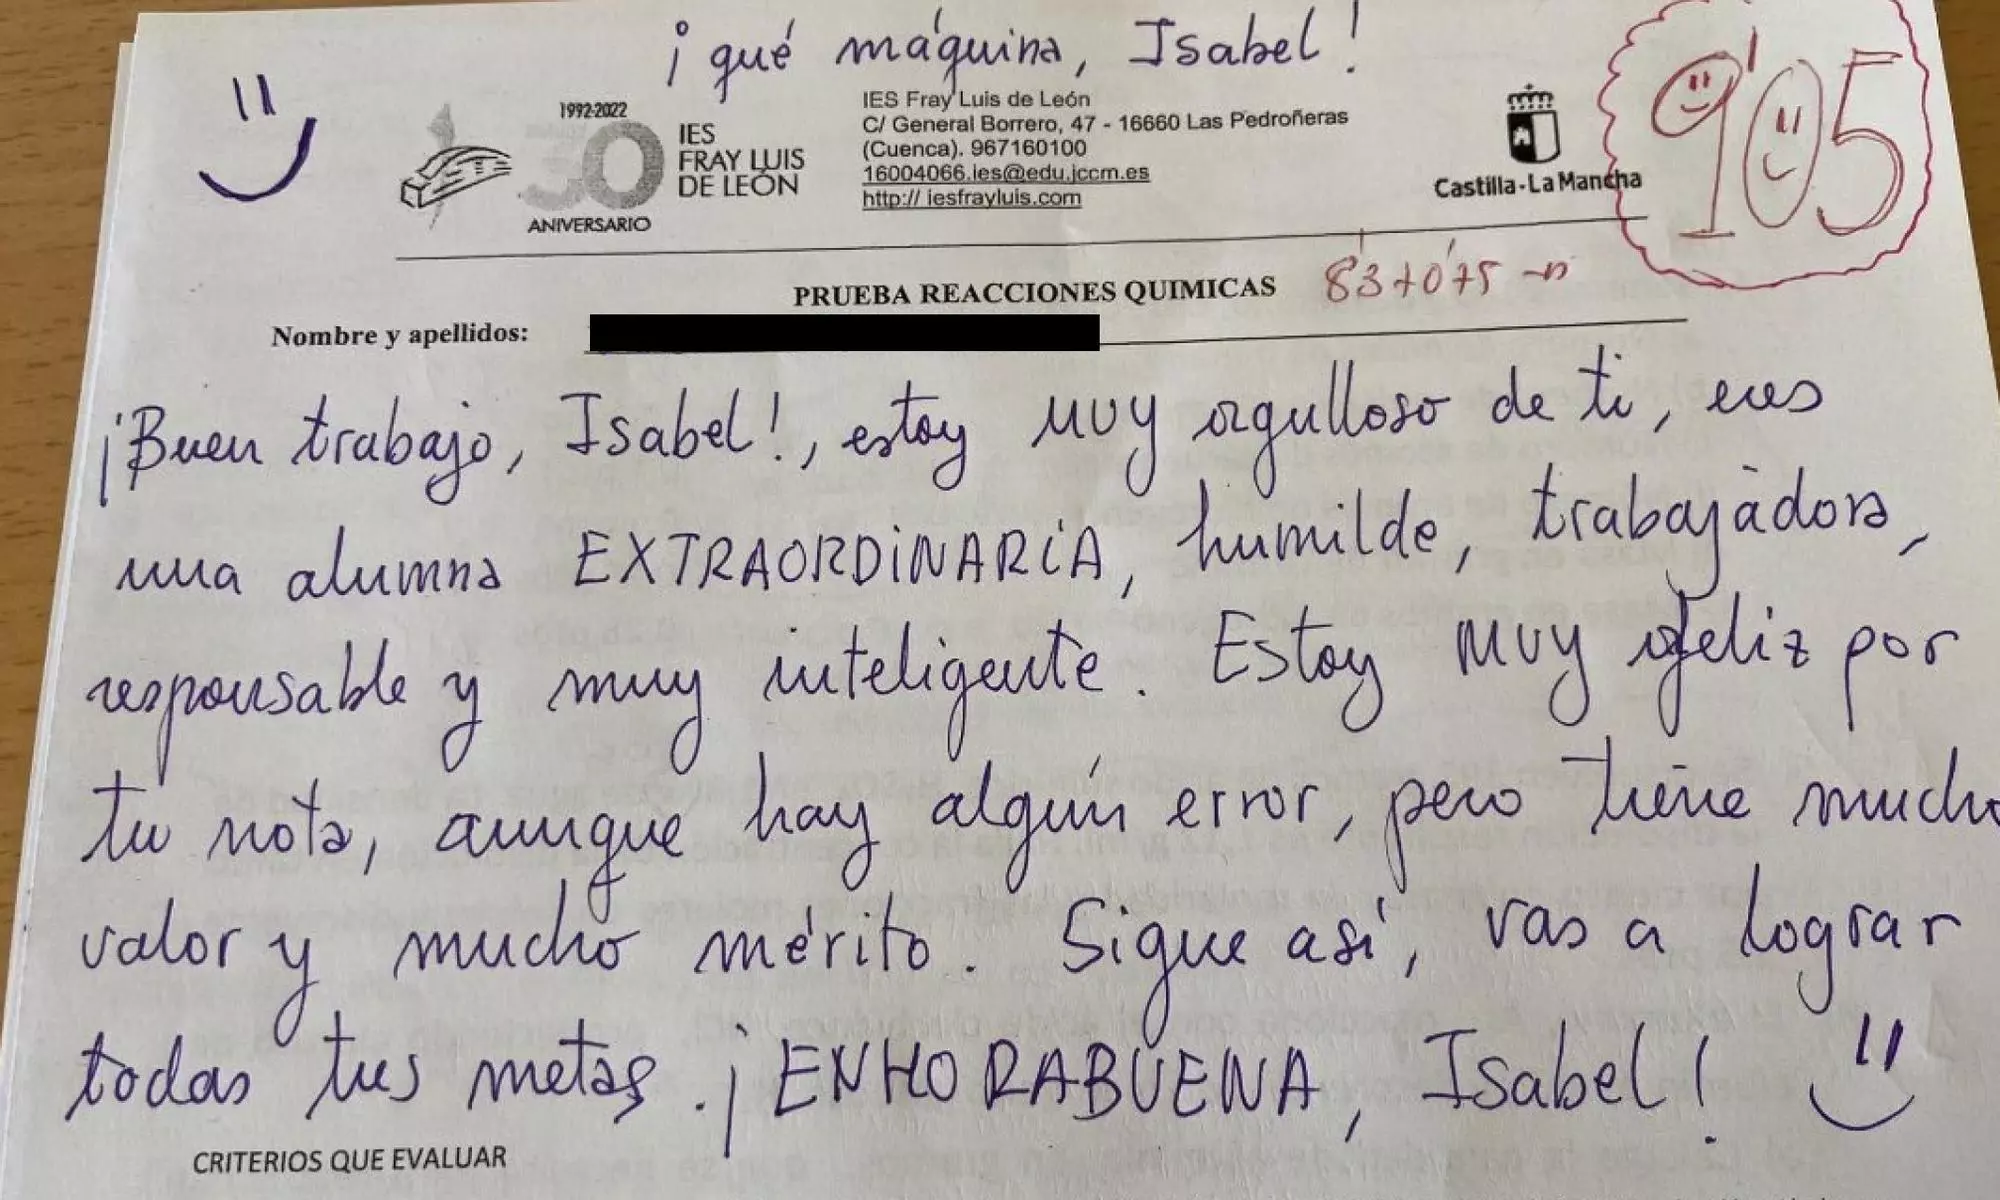 ¡qué máquina, Isabel!
9'05
1992-2022
30
ANIVERSARIO
IES
FRAY LUIS
DE LEÓN
IES Fray Luis de León
C/ General Borrero, 47 - 16660 Las Pedroñeras
(Cuenca). 967160100
16004066.ies@edu.jccm.es
http:// iesfrayluis.com
Castilla-La Mancha
PRUEBA REACCIONES QUIMICAS
8'3+0'75 →
Nombre y apellidos:
¡Buen trabajo, Isabel!, estoy muy orgulloso de ti, eres
una alumna EXTRAORDINARIA, humilde, trabajadora,
responsable y muy inteligente. Estoy muy feliz por
tu nota, aunque hay algún error, pero tiene mucho
valor y mucho mérito. Sigue así, vas a lograr
todas tus metas. ¡ENHORABUENA, Isabel!
CRITERIOS QUE EVALUAR